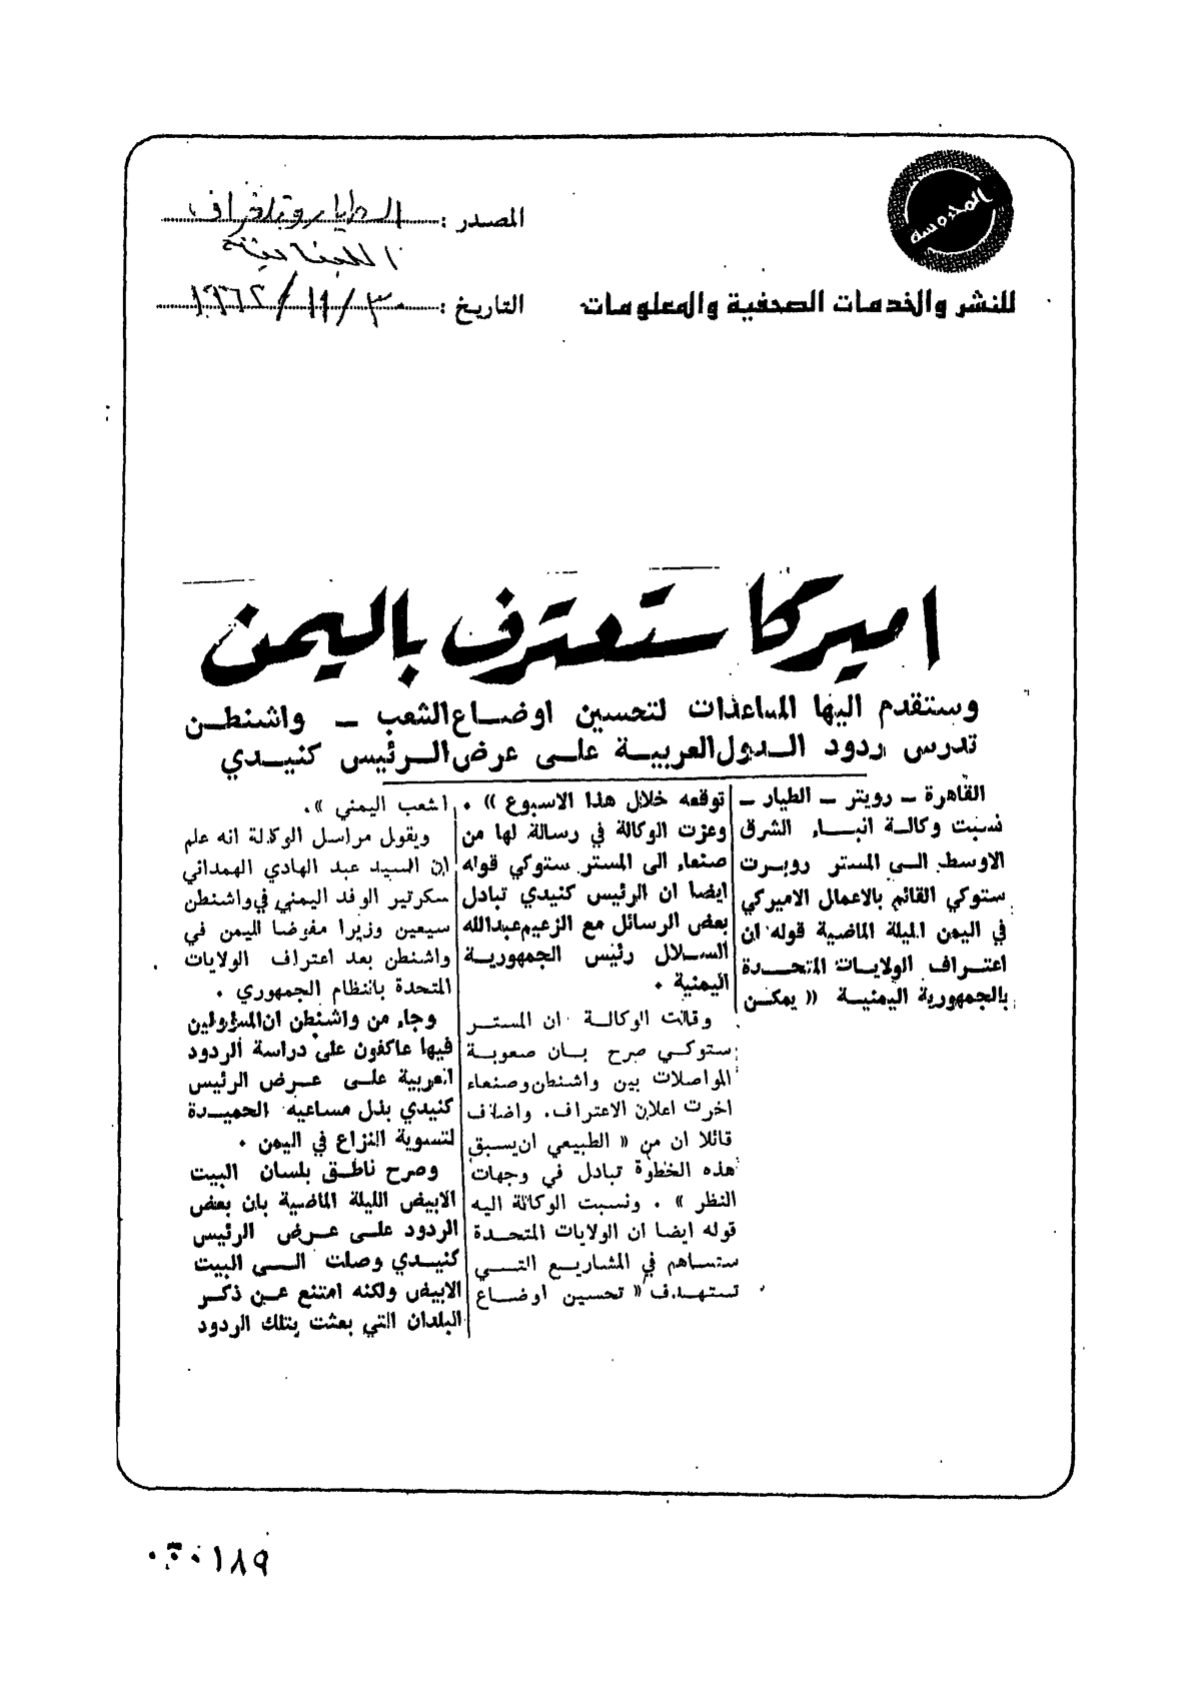 المحروسة
للنشر والخدمات الصحفية والمعلومات
المصدر :
اللبنانية
التاريخ : ٣٠ / ١١ / ١٩٦٢
اميركا ستعترف باليمن
وستقدم اليها المساعدات لتحسين اوضاع الشعب – واشنطن
تدرس ردود الدول العربية على عرض الرئيس كنيدي
القاهرة – رويتر – الطيار –
نسبت وكالة انباء الشرق
الاوسط الى المستر روبرت
ستوكي القائم بالاعمال الاميركي
في اليمن الليلة الماضية قوله ان
اعتراف الولايات المتحدة
بالجمهورية اليمنية « يمكن
توقعه خلال هذا الاسبوع » .
وعزت الوكالة في رسالة لها من
صنعاء الى المستر ستوكي قوله
ايضا ان الرئيس كنيدي تبادل
بعض الرسائل مع الزعيم عبدالله
السلال رئيس الجمهورية
اليمنية .
وقالت الوكالة ان المستر
ستوكي صرح بان صعوبة
المواصلات بين واشنطن وصنعاء
اخرت اعلان الاعتراف . واضاف
قائلا ان من « الطبيعي ان يسبق
هذه الخطوة تبادل في وجهات
النظر » . ونسبت الوكالة اليه
قوله ايضا ان الولايات المتحدة
ستساهم في المشاريع التي
تستهدف « تحسين اوضاع
الشعب اليمني » .
ويقول مراسل الوكالة انه علم
ان السيد عبد الهادي الهمداني
سكرتير الوفد اليمني في واشنطن
سيعين وزيرا مفوضا لليمن في
واشنطن بعد اعتراف الولايات
المتحدة بالنظام الجمهوري .
وجاء من واشنطن ان المسؤولين
فيها عاكفون على دراسة الردود
العربية على عرض الرئيس
كنيدي بذل مساعيه الحميدة
لتسوية النزاع في اليمن .
وصرح ناطق بلسان البيت
الابيض الليلة الماضية بان بعض
الردود على عرض الرئيس
كنيدي وصلت الى البيت
الابيض ولكنه امتنع عن ذكر
البلدان التي بعثت بتلك الردود